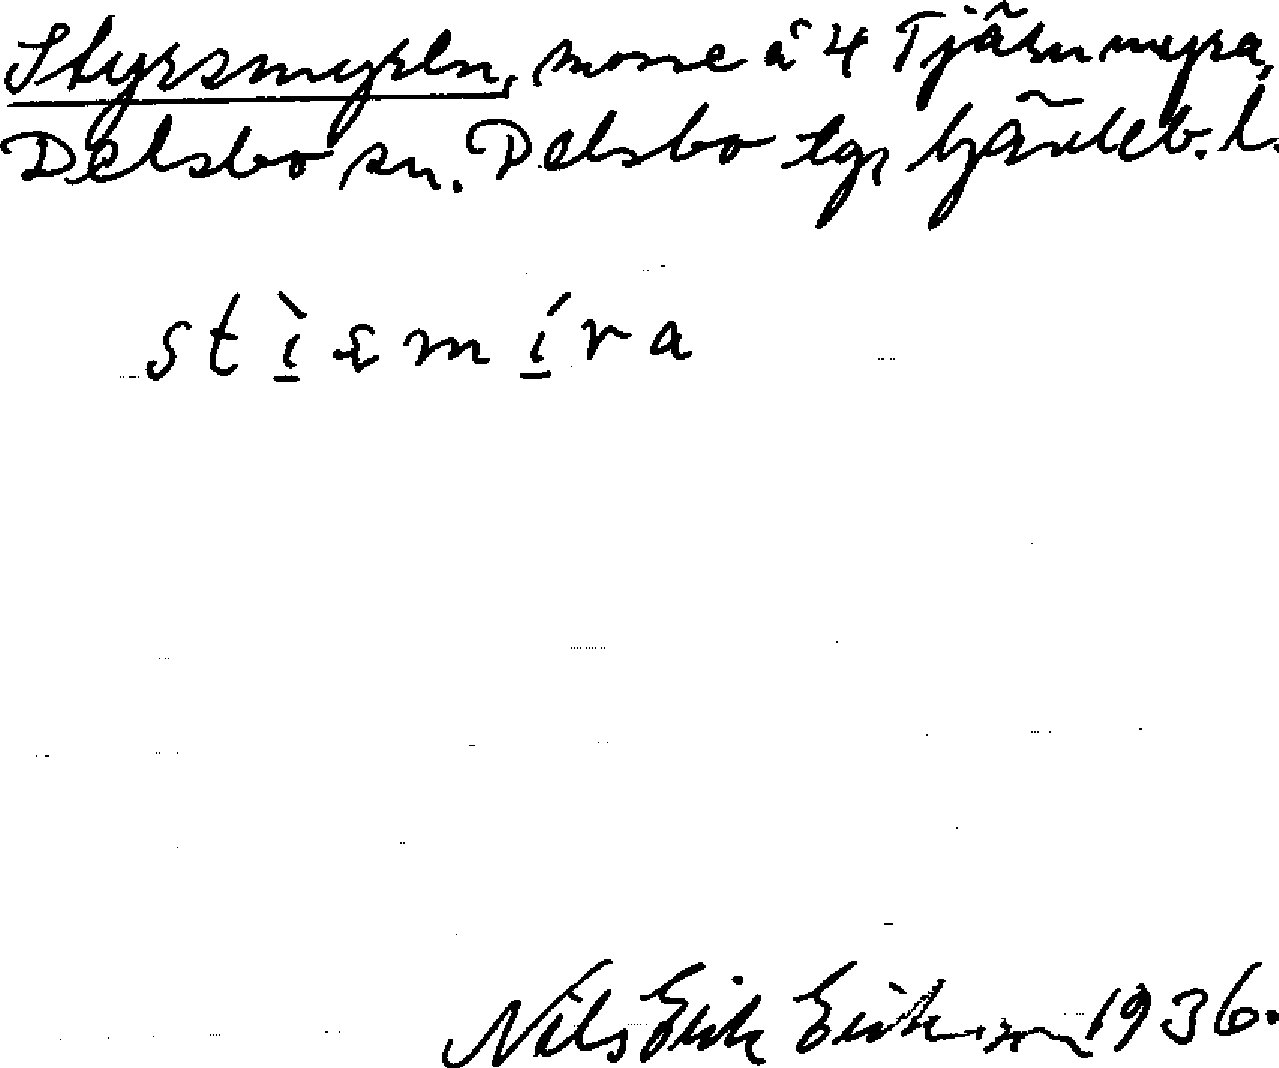 Styrsmyren, mosse å 4 Tjärnmyra,
Delsbo sn. Delsbo tg, Gävleb. l.
stìsmíra
Nils Erik Erikson 1936.